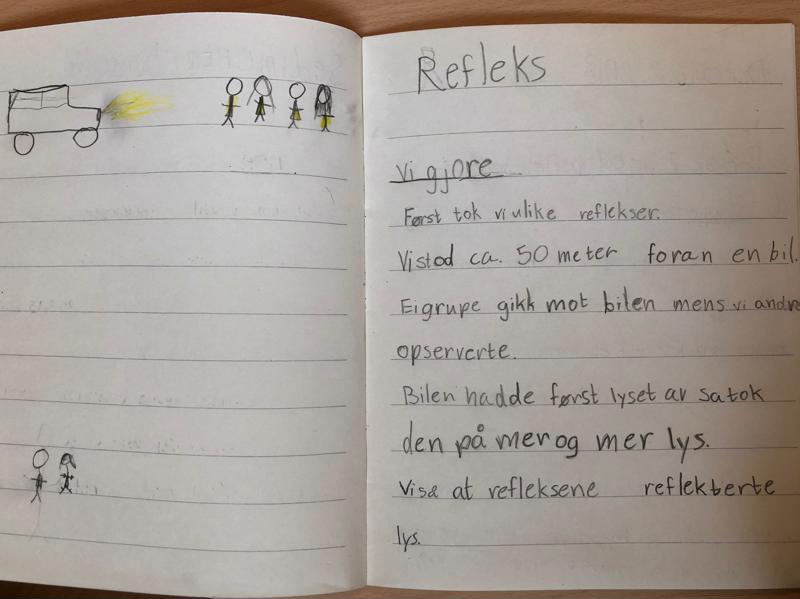 Refleks
Vi gjore
Først tok vi ulike reflekser.
Vi stod ca. 50 meter foran en bil.
Ei grupe gikk mot bilen mens vi andre
opserverte.
Bilen hadde først lyset av sa tok
den på mer og mer lys.
Vi sa at refleksene reflekterte
lys.